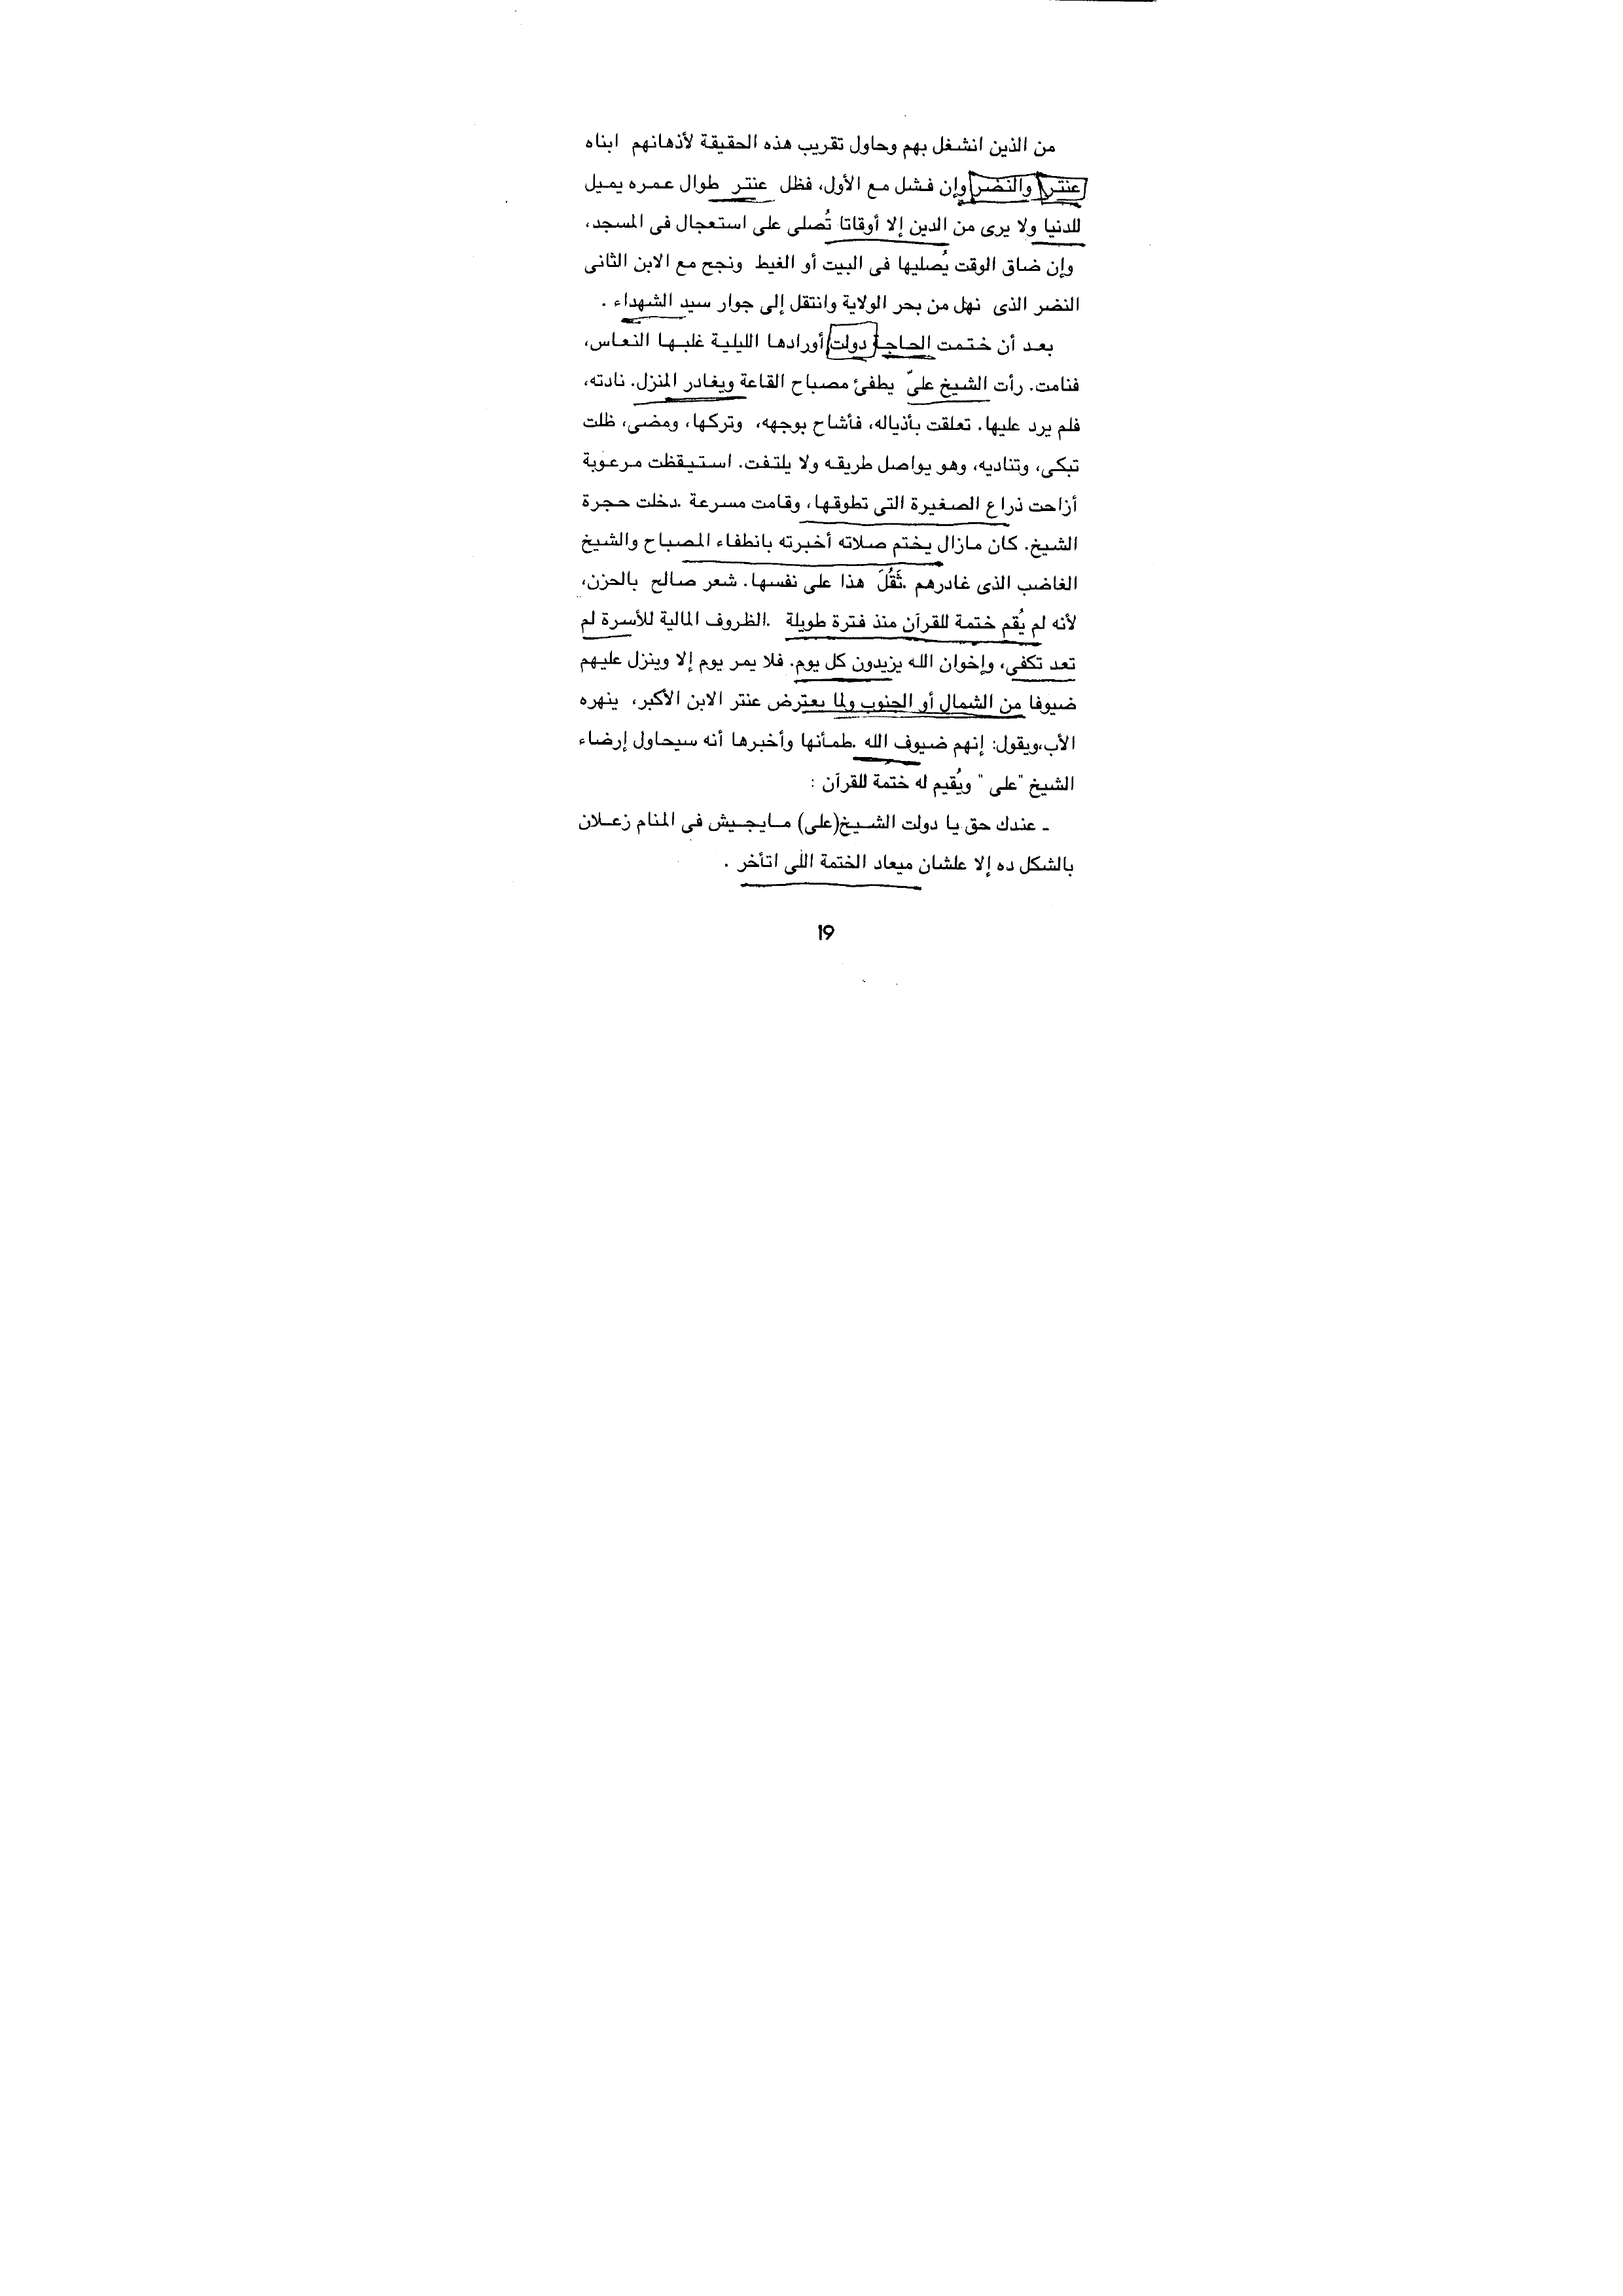 من الذين انشغل بهم وحاول تقريب هذه الحقيقة لأذهانهم ابناه
عنتر والنضر وإن فشل مع الأول، فظل عنتر طوال عمره يميل
للدنيا ولا يرى من الدين إلا أوقاتا تُصلى على استعجال فى المسجد،
وإن ضاق الوقت يُصليها فى البيت أو الغيط ونجح مع الابن الثانى
النضر الذى نهل من بحر الولاية وانتقل إلى جوار سيد الشهداء .
بعد أن ختمت الحاجة دولت أورادها الليلية غلبها النعاس،
فنامت. رأت الشيخ علىّ يطفئ مصباح القاعة ويغادر المنزل. نادته،
فلم يرد عليها. تعلقت بأذياله، فأشاح بوجهه، وتركها، ومضى، ظلت
تبكى، وتناديه، وهو يواصل طريقه ولا يلتفت. استيقظت مرعوبة
أزاحت ذراع الصغيرة التى تطوقها، وقامت مسرعة .دخلت حجرة
الشيخ. كان مازال يختم صلاته أخبرته بانطفاء المصباح والشيخ
الغاضب الذى غادرهم .ثَقُلَ هذا على نفسها. شعر صالح بالحزن،
لأنه لم يُقم ختمة للقرآن منذ فترة طويلة .الظروف المالية للأسرة لم
تعد تكفى، وإخوان الله يزيدون كل يوم. فلا يمر يوم إلا وينزل عليهم
ضيوفا من الشمال أو الجنوب ولما يعترض عنتر الابن الأكبر، ينهره
الأب،ويقول: إنهم ضيوف الله .طمأنها وأخبرها أنه سيحاول إرضاء
الشيخ "على " ويُقيم له ختمة للقرآن :
ـ عندك حق يا دولت الشيخ(على) مايجيش فى المنام زعلان
بالشكل ده إلا علشان ميعاد الختمة اللى اتأخر .
19